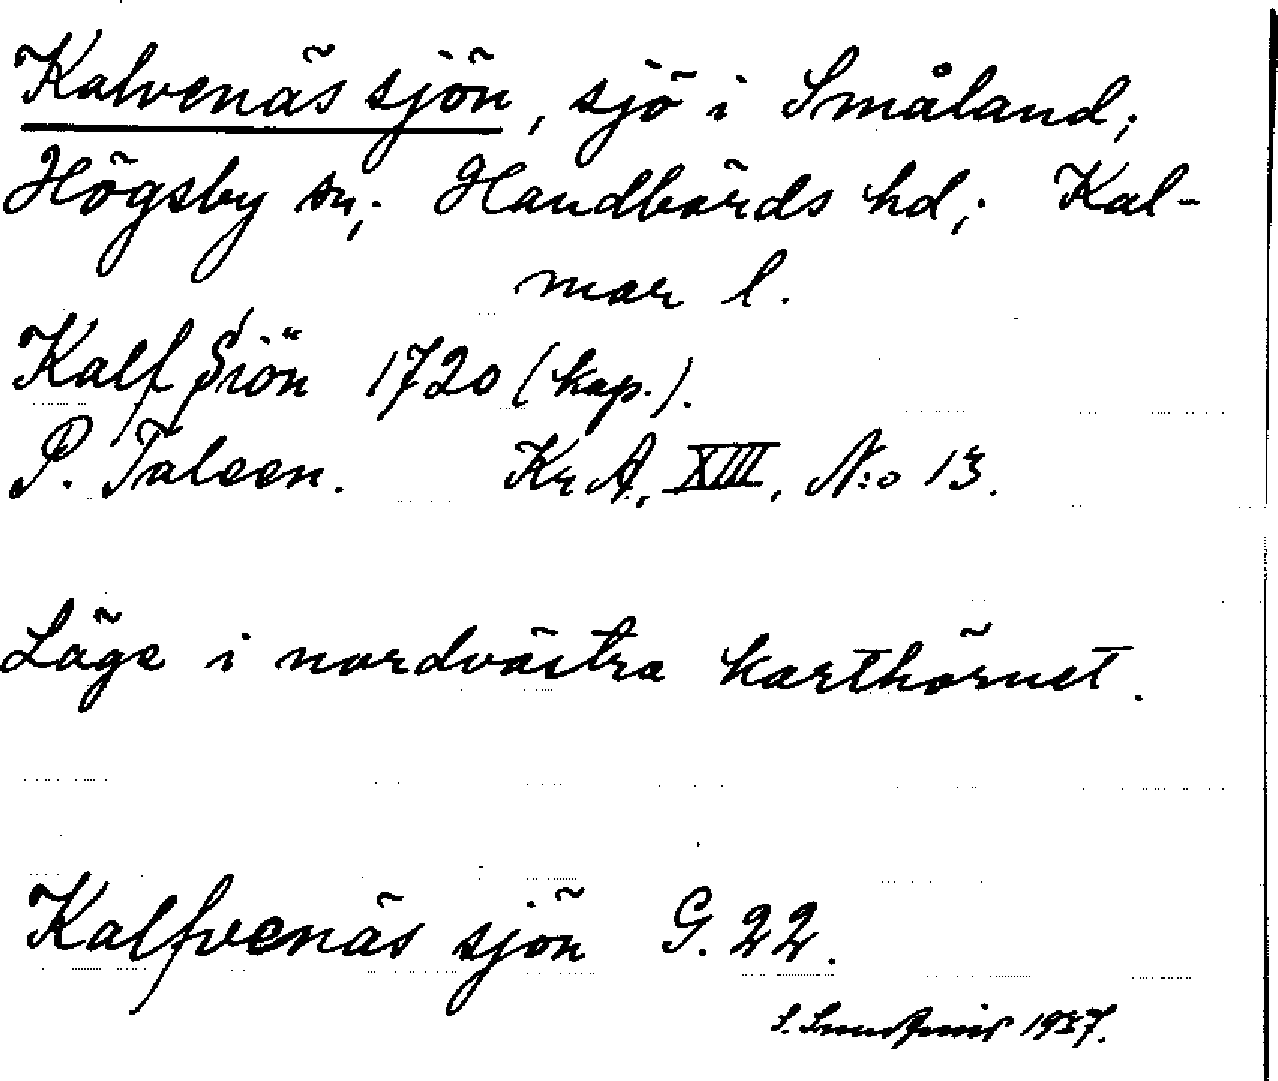 Kalvenäs sjön, sjö i Småland;
Högsby sn; Handbörds hd; Kal-
mar l.
Kalf Siön 1720 (kop.).
P. Duleen. Kr A, XIII, N:o 13.
Läge i nordvästra karthörnet.
Kalfvenäs sjön G. 22.
S. 1937.